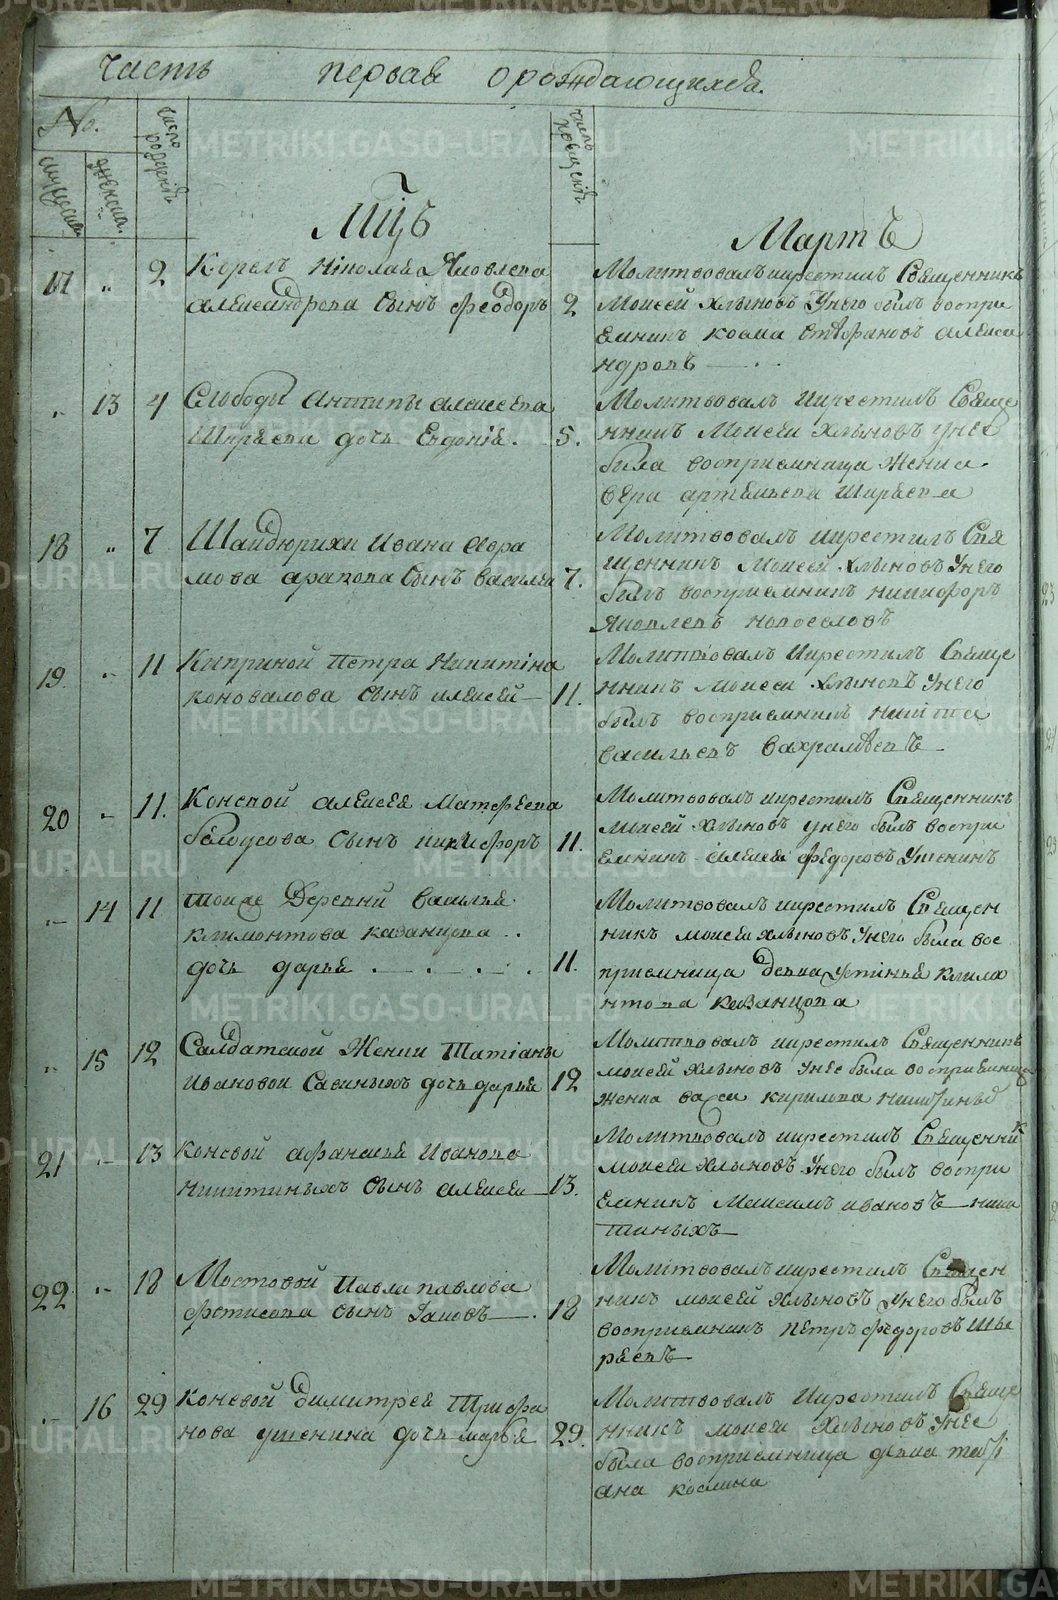 часть первая о рождающихся.
No.
мужеска.
женска.
число рождения
число крещения
Мцъ
Мартъ
17 „ 2 Корелъ Николая Яковлева
александрова сынъ феодоръ 2
Молитвовалъ икрестилъ Священникъ
Моисей Хлыновъ Унего былъ воспри
емникъ козма стефановъ алекса
ндровъ
„ 13 4 Слободы Антипы алексеева
Ширяева дочь Евдокія. 5.
Молитвовалъ икрестилъ Свяще
нникъ Моисеи Хлыновъ унее
была восприемница женка
вера артемьева Ширяева
18 „ 7 Шайдюрихи Ивана Авра
мова арапова сынъ василеи 7.
Молитвовалъ икрестилъ Свя
щенникъ Моисеи Хлыновъ Унего
былъ восприемникъ никифоръ
Яковлевъ новоселовъ
19. „ 11 Киприной Петра Никитина
коновалова сынъ алексей 11.
Молитвовалъ икрестилъ Свяще
нникъ Моисеи Хлыновъ Унего
былъ восприемникъ никита
васильевъ вахрамѣевъ
20 „ 11. Коневой алексея Матфеева
белоусова сынъ никифоръ 11.
Молитвовалъ икрестилъ Священникъ
Моисей Хлыновъ унего былъ воспри
емникъ алексеи федоровъ Ушенинъ
„ 14 11 тояже Деревни василья
климонтова казанцова
дочь дарья 11.
Молитвовалъ икрестилъ Священ
никъ моисеи хлыновъ Унего была вос
приемница девка устинья клима
нтова казанцова
„ 15 12 Салдатской Женки Татіаны
Ивановой Савиныхъ дочь дарья 12
Молитвовалъ икрестилъ Священникъ
моисей Хлыновъ Унее была восприемница
женка васса кирилова никитиныхъ
21 „ 13 Коневой афанасья Иванова
Никитиныхъ сынъ алексеи 13.
Молитвовалъ икрестилъ Священникъ
моисеи Хлыновъ Унего былъ воспри
емникъ Максимъ ивановъ ники
тиныхъ
22 „ 18 Мостовой Павла павлова
Фетисова сынъ Яковъ 18
Молитвовалъ икрестилъ Священ
никъ моисей Хлыновъ Унего былъ
восприемникъ петръ федоровъ Ши
ряевъ
„ 16 29 Коневой Димитрея Трифа
нова ушенина дочь марья 29.
Молитвовалъ Икрестилъ Свяще
нникъ моисеи Хлыновъ Унее
была восприемница девка тать
ана козмина